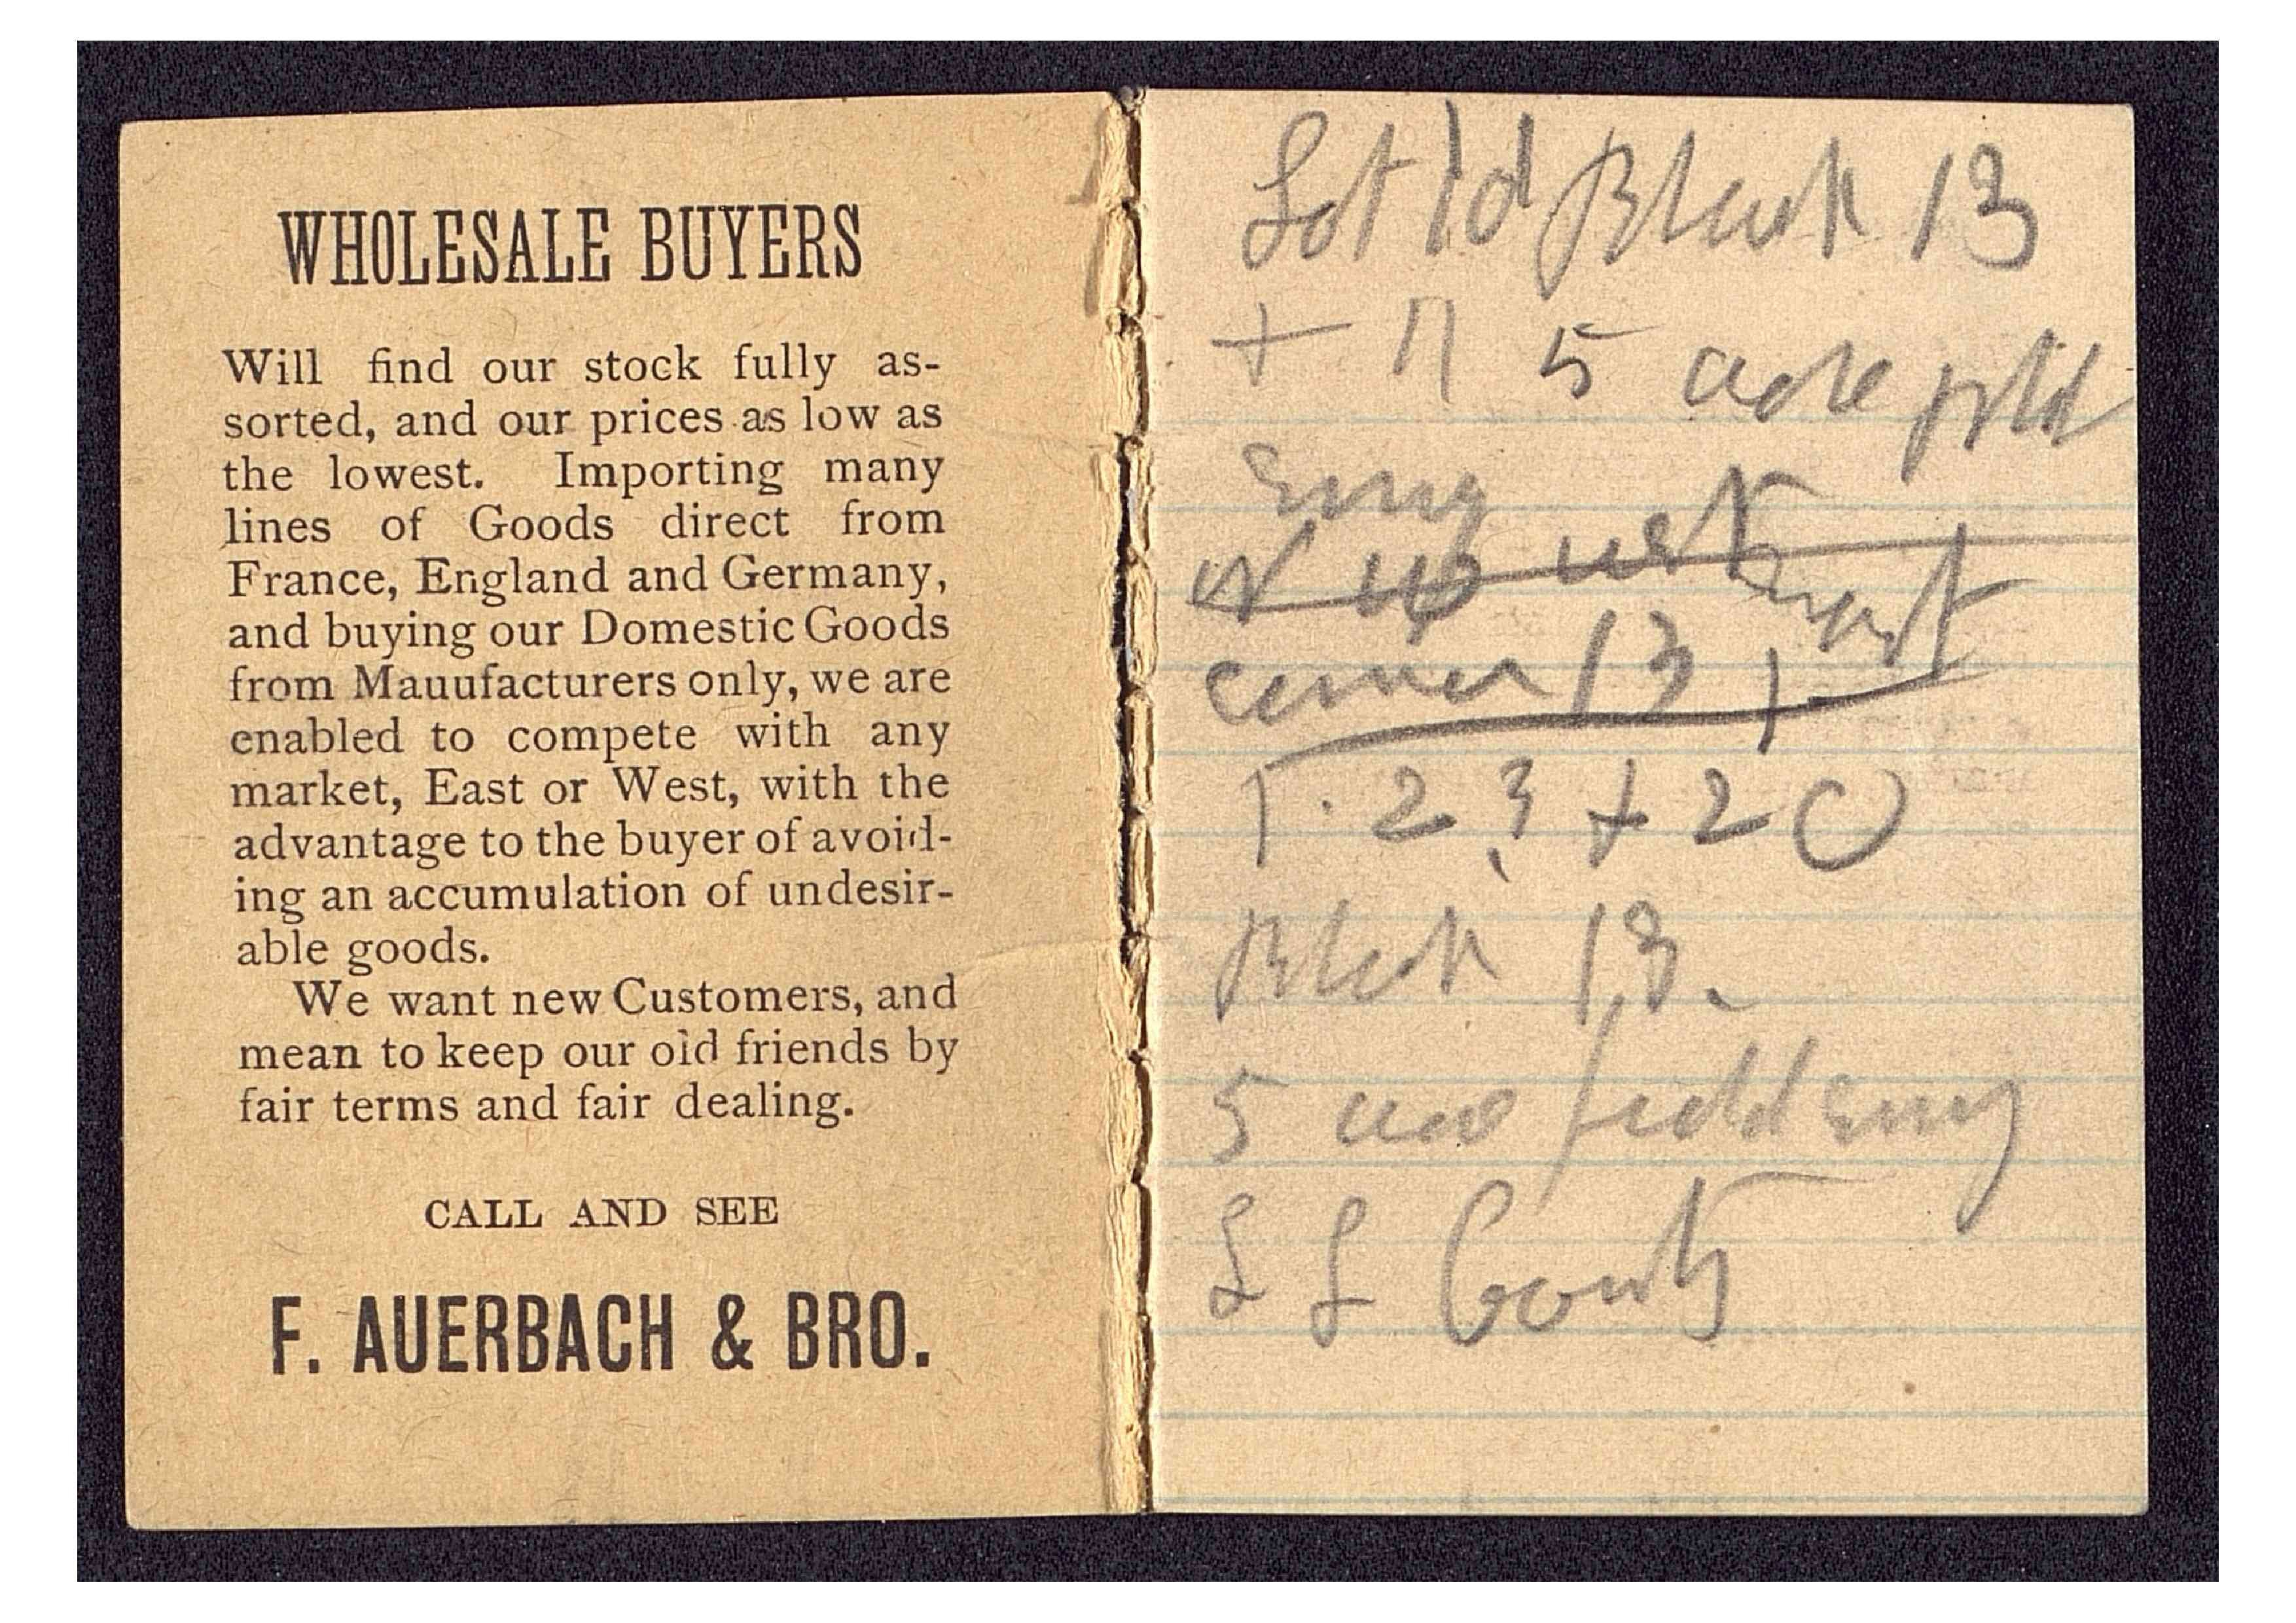 WHOLESALE BUYERS
Will find our stock fully as-
sorted, and our prices as low as
the lowest. Importing many
lines of Goods direct from
France, England and Germany,
and buying our Domestic Goods
from Mauufacturers only, we are
enabled to compete with any
market, East or West, with the
advantage to the buyer of avoid-
ing an accumulation of undesir-
able goods.
We want new Customers, and
mean to keep our old friends by
fair terms and fair dealing.
CALL AND SEE
F. AUERBACH & BRO.
Lot Block 13
+ 11 5 acre
Survy
corner 13
1. 2 3 + 20
Block 13.
5 acre field Survy